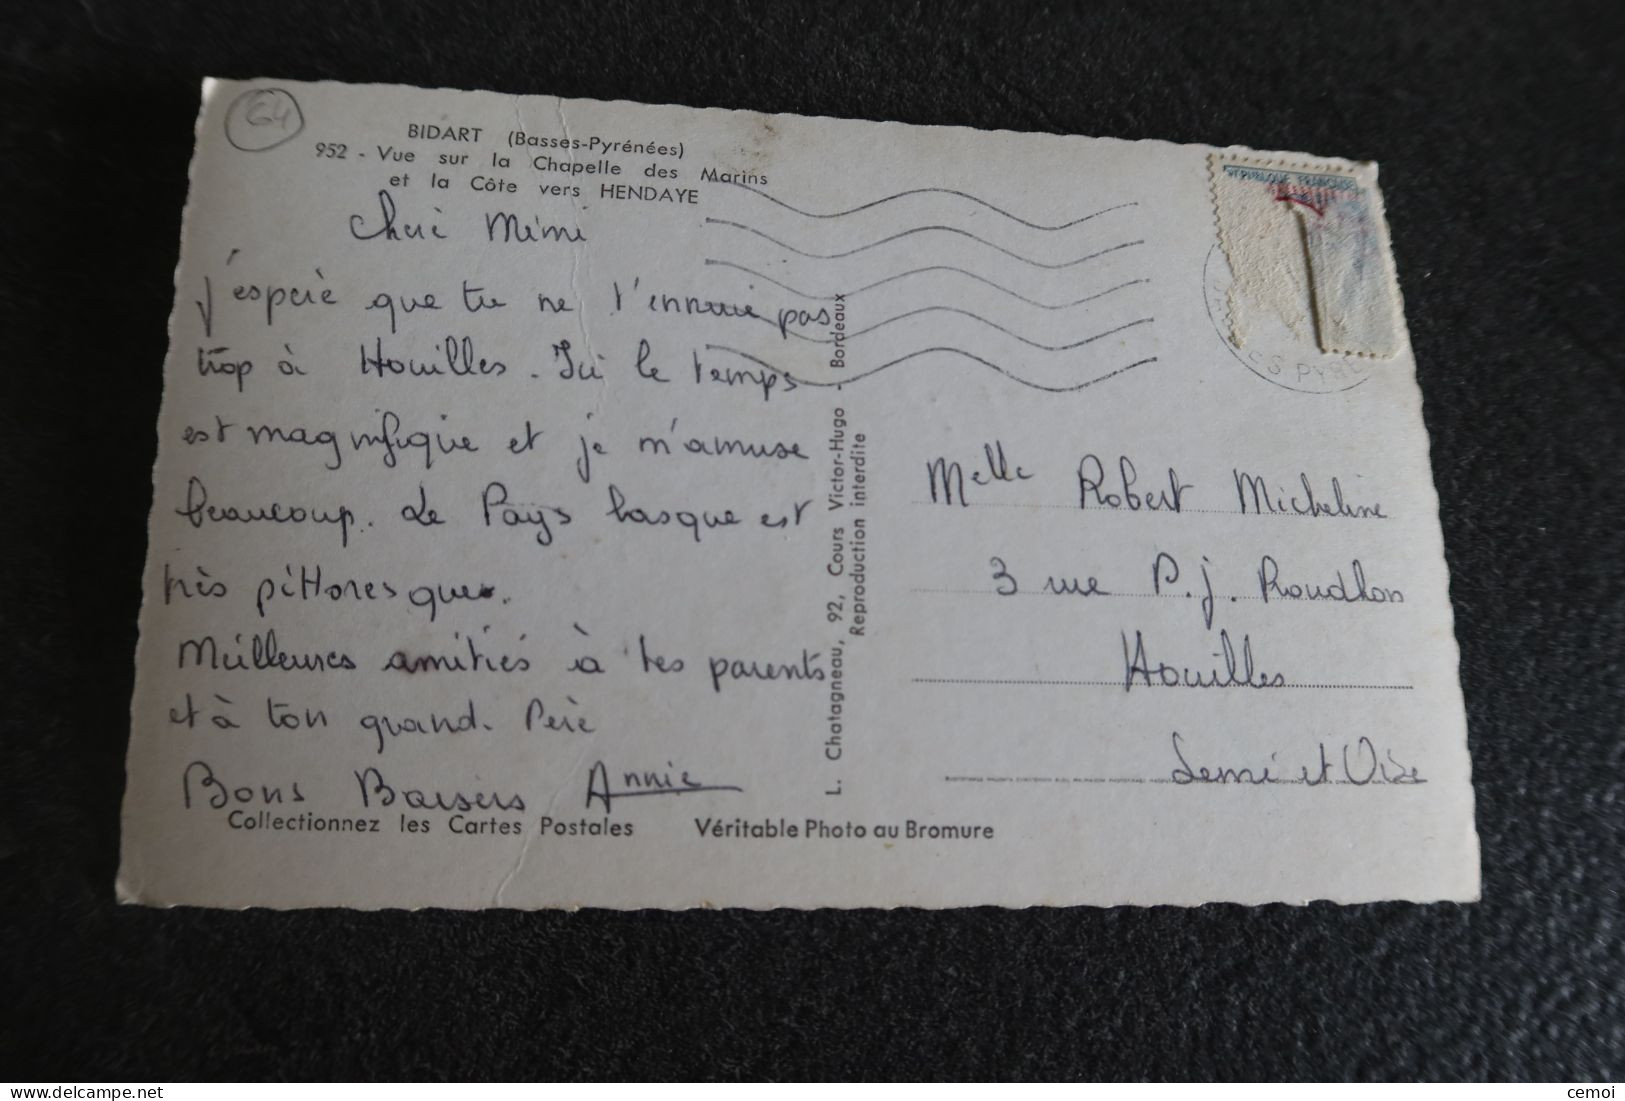 64
BIDART (Basses-Pyrénées)
952 - Vue sur la Chapelle des Marins
et la Côte vers HENDAYE
Cheri Mimi
j'espère que tu ne t'ennuie pas
trop à Houilles. Ici le temps
est magnifique et je m'amuse
beaucoup. Le Pays basque est
très pittoresque.
Meilleures amitiés à tes parents
et à ton grand. Père
Bons Baisers Annie
Collectionnez les Cartes Postales
Véritable Photo au Bromure
L. Chatagneau, 92, Cours Victor-Hugo - Bordeaux
Reproduction interdite
REPUBLIQUE FRANÇAISE
Melle Robert Micheline
3 rue P. J. Proudhon
Houilles
Seine et Oise
cemoi